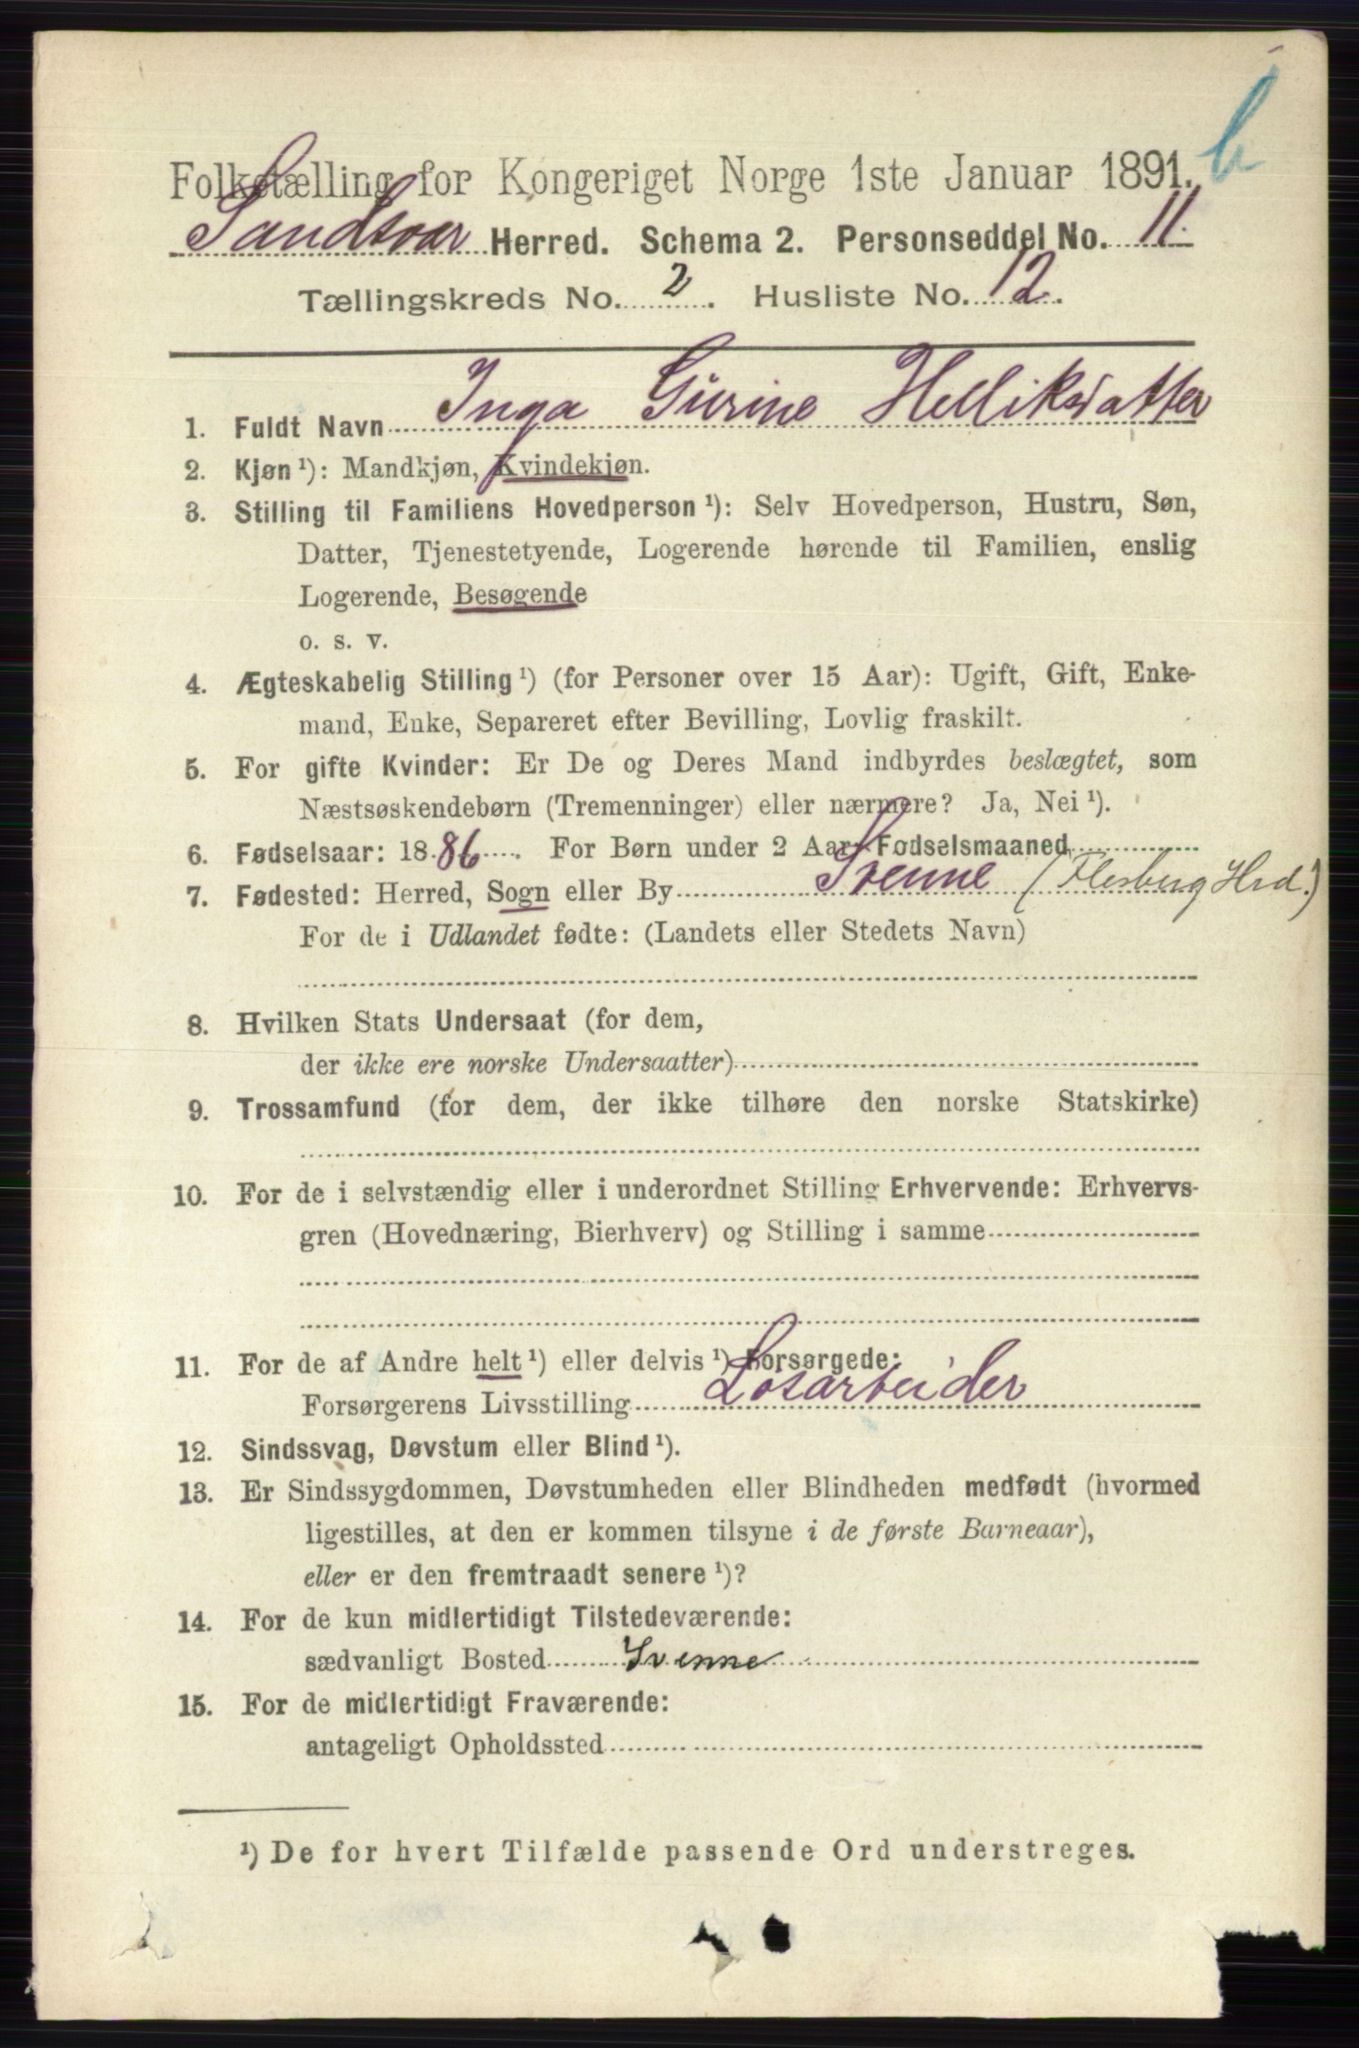 b
Folketælling for Kongeriget Norge 1ste Januar 1891.
Sandsvær Herred. Schema 2. Personseddel No. 11.
Tællingskreds No. 2. Husliste No. 12.
1. Fuldt Navn Inga Gurine Helliksdatter
2. Kjøn ¹): Mandkjøn, Kvindekjøn.
3. Stilling til Familiens Hovedperson ¹): Selv Hovedperson, Hustru, Søn,
Datter, Tjenestetyende, Logerende hørende til Familien, enslig
Logerende, Besøgende
o. s. v.
4. Ægteskabelig Stilling ¹) (for Personer over 15 Aar): Ugift, Gift, Enke-
mand, Enke, Separeret efter Bevilling, Lovlig fraskilt.
5. For gifte Kvinder: Er De og Deres Mand indbyrdes beslægtet, som
Næstsøskendebørn (Tremenninger) eller nærmere? Ja, Nei ¹).
6. Fødselsaar: 1886. For Børn under 2 Aar: Fødselsmaaned
7. Fødested: Herred, Sogn eller By Svenne (Flesberg Hrd.)
For de i Udlandet fødte: (Landets eller Stedets Navn)
8. Hvilken Stats Undersaat (for dem,
der ikke ere norske Undersaatter)
9. Trossamfund (for dem, der ikke tilhøre den norske Statskirke)
10. For de i selvstændig eller i underordnet Stilling Erhvervende: Erhvervs-
gren (Hovednæring, Bierhverv) og Stilling i samme
11. For de af Andre helt ¹) eller delvis ¹) Forsørgede:
Forsørgerens Livsstilling Løsarbeider
12. Sindssvag, Døvstum eller Blind ¹).
13. Er Sindssygdommen, Døvstumheden eller Blindheden medfødt (hvormed
ligestilles, at den er kommen tilsyne i de første Barneaar),
eller er den fremtraadt senere ¹)?
14. For de kun midlertidigt Tilstedeværende:
sædvanligt Bosted Svenne
15. For de midlertidigt Fraværende:
antageligt Opholdssted
¹) De for hvert Tilfælde passende Ord understreges.